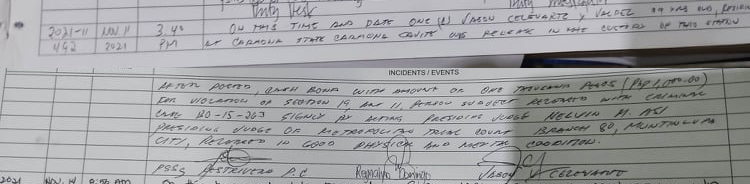 Duty Desk
2021-11 NOV. 11 3:40 ON THIS TIME AND DATE ONE (1) JASON CELEVANTE Y VALDEZ
492 2021 PM AT CARMONA STATE CARMONA CAVITE WAS RELEASE IN THE CUSTODY OF THIS STATION
INCIDENTS / EVENTS
AFTER POSTED, CASH BOND WITH AMOUNT OF ONE THOUSAND PESOS (Php 1,000.00)
FOR VIOLATION OF SECTION 19 AND 11, PERSON SUBJECT RECORDED WITH CRIMINAL
CASE NO-15-203 SIGNED BY ACTING PRESIDING JUDGE NELVIN M.
PRESIDING JUDGE OF METROPOLITAN TRIAL COURT BRANCH 80, MUNTINLUPA
CITY, RELEASED IN GOOD PHYSICAL AND MENTAL CONDITION.
PSSg P.C JASON V CELEVANTE
2021 NOV. 14 AM